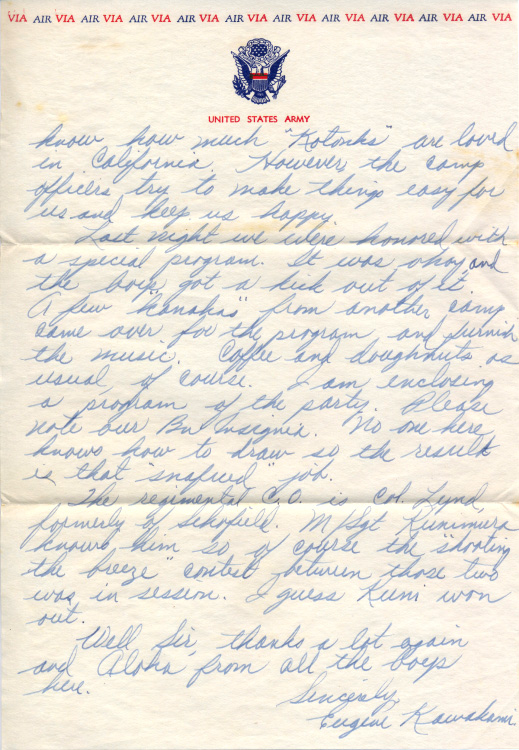 VIA AIR VIA AIR VIA AIR VIA AIR VIA AIR VIA AIR VIA AIR VIA AIR VIA AIR VIA
UNITED STATES ARMY
know how much "Kotonks" are loved
in California. However, the camp
officers try to make things easy for
us and keep us happy.
Last night we were honored with
a special program. It was okay and
the boys got a kick out of it.
A few "Kanakas" from another camp
came over for the program and furnish
the music. Coffee and doughnuts as
usual of course. I am enclosing
a program of the party. Please
note our Bn Insignia. No one here
knows how to draw so the result
is that "snafued" job.
The regimental C.O. is Col. Lynd,
formerly of Schofield. M/Sgt Kunimura
knows him so of course the "shooting
the breeze" contest between those two
was in session. I guess Kuni won
out.
Well Sir, thanks a lot again
and Aloha from all the boys
here.
Sincerely,
Eugene Kawakami.